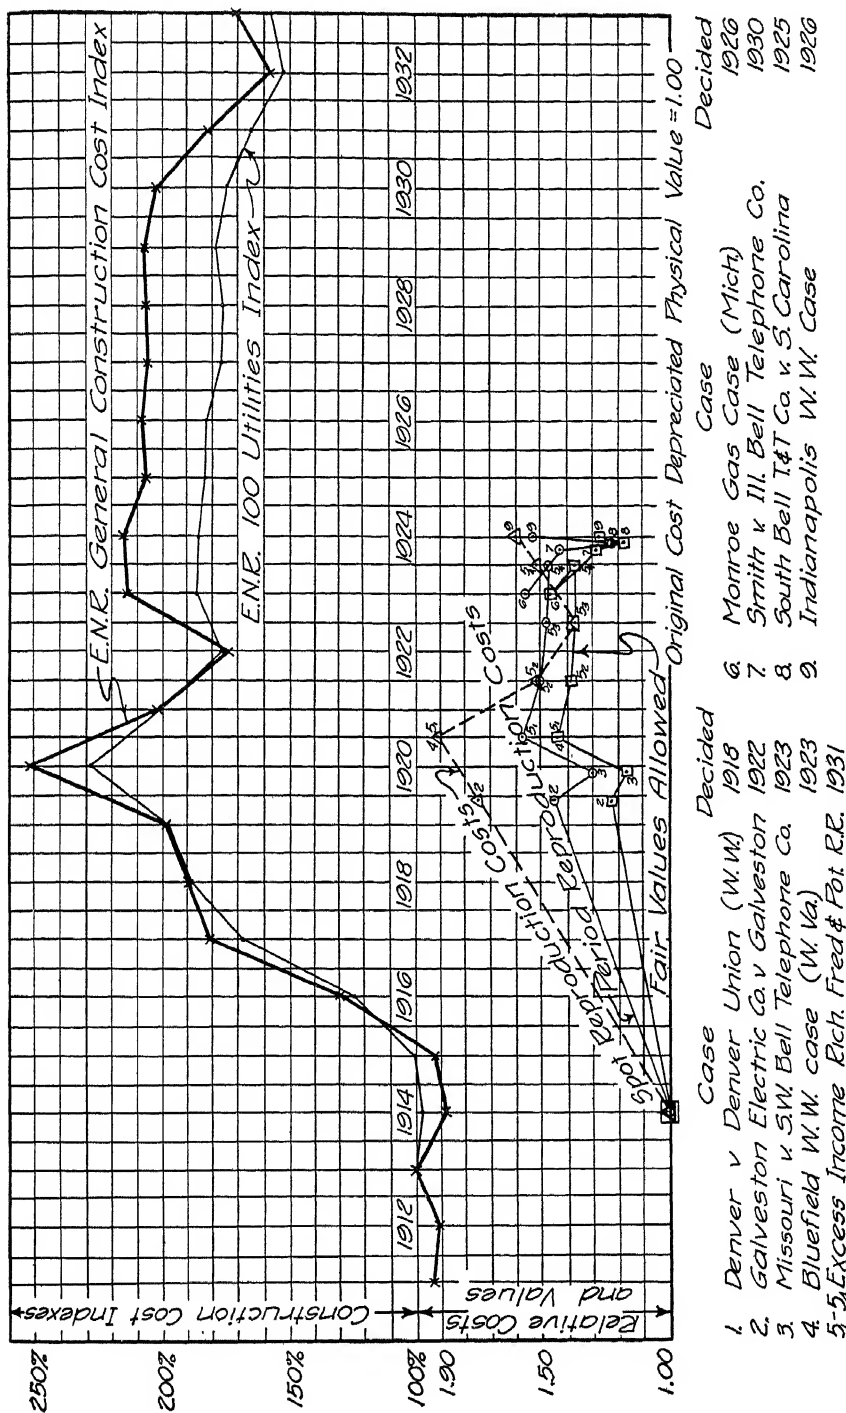 250%
200%
150%
100%
1.90
1.50
1.00
Construction Cost Indexes
Relative Costs
and Values
E.N.R. General Construction Cost Index
E.N.R. 100 Utilities Index
1912
1914
1916
1918
1920
1922
1924
1926
1928
1930
1932
Spot Reproduction Costs
Period Reproduction Costs
Fair Values Allowed
Original Cost Depreciated Physical Value = 1.00
Case Decided
1. Denver v Denver Union (W.W.) 1918
2. Galveston Electric Co. v Galveston 1922
3. Missouri v. S.W. Bell Telephone Co. 1923
4. Bluefield W.W. case (W. Va.) 1923
5,-5, Excess Income Rich. Fred & Pot. R.R. 1931
Case Decided
6. Monroe Gas Case (Mich.) 1926
7. Smith v. Ill. Bell Telephone Co. 1930
8. South Bell T.&T. Co. v. S. Carolina 1925
9. Indianapolis W.W. Case 1926